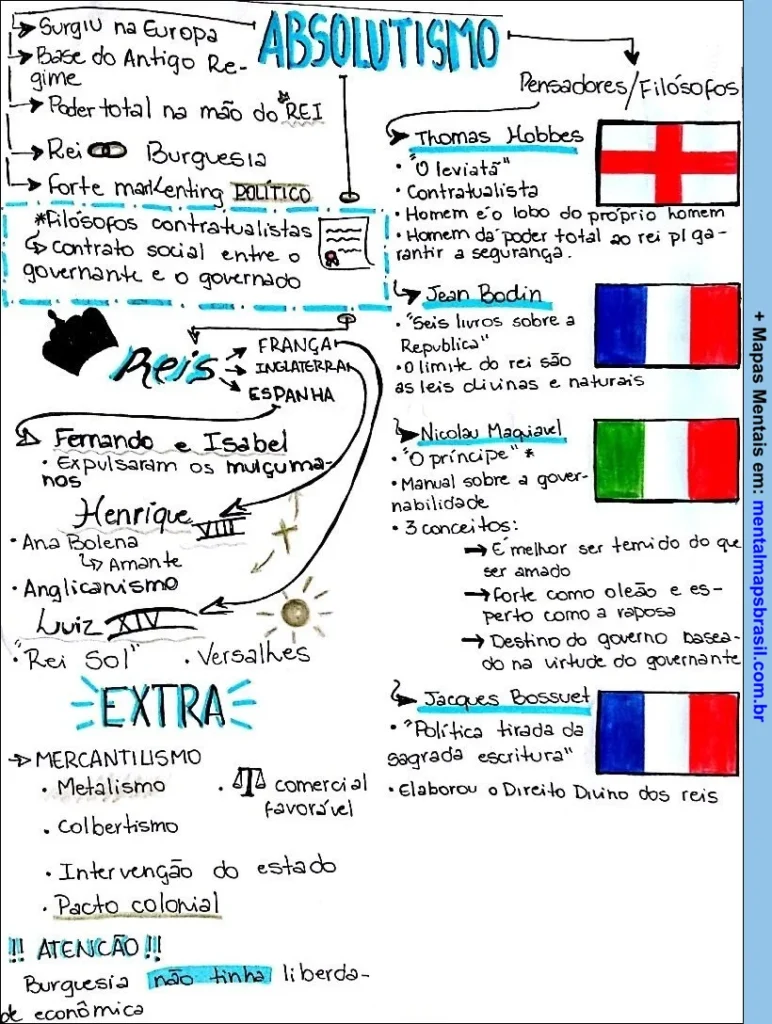 ABSOLUTISMO
Surgiu na Europa
Base do Antigo Re-
gime
Poder total na mão do REI
Rei Burguesia
Forte markenting POLÍTICO
*Filósofos contratualistas
contrato social entre o
governante e o governado
Reis
FRANÇA
INGLATERRA
ESPANHA
Fernando e Isabel
• Expulsaram os mulçuma-
nos
Henrique VIII
• Ana Bolena
Amante
• Anglicanismo
Luiz XIV
• "Rei Sol" . Versalhes
EXTRA
MERCANTILISMO
• Metalismo
• comercial
favorável
• Colbertismo
• Intervenção do estado
• Pacto colonial
!! ATENCÃO !!
Burguesia não tinha liberda-
de econômica
Pensadores/Filósofos
Thomas Hobbes
• "O leviatã"
• Contratualista
• Homem é o lobo do próprio homem
• Homem dá poder total ao rei p/ ga-
rantir a segurança.
Jean Bodin
• "Seis livros sobre a
Republica"
• O limite do rei são
as leis divinas e naturais
Nicolau Maquiavel
• "O príncipe" *
• Manual sobre a gover-
nabilidade
• 3 conceitos:
É melhor ser temido do que
ser amado
Forte como o leão e es-
perto como a raposa
Destino do governo basea-
do na virtude do governante
Jacques Bossuet
• "Política tirada da
sagrada escritura"
• Elaborou o Direito Divino dos reis
+ Mapas Mentais em: mentalmapsbrasil.com.br